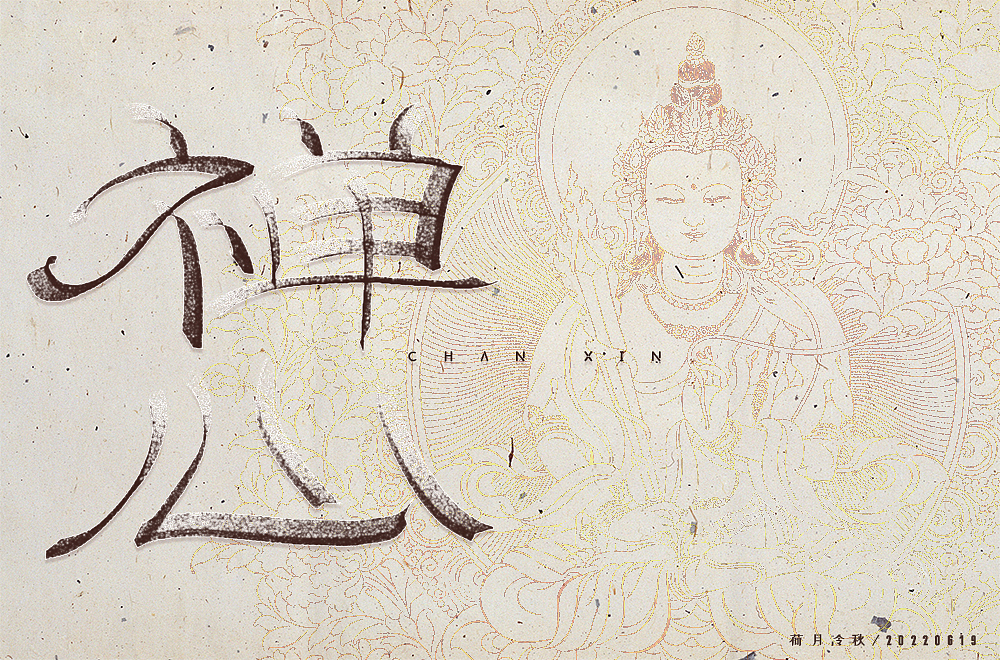 禅
心
CHAN XIN
荷月冷秋/20220619